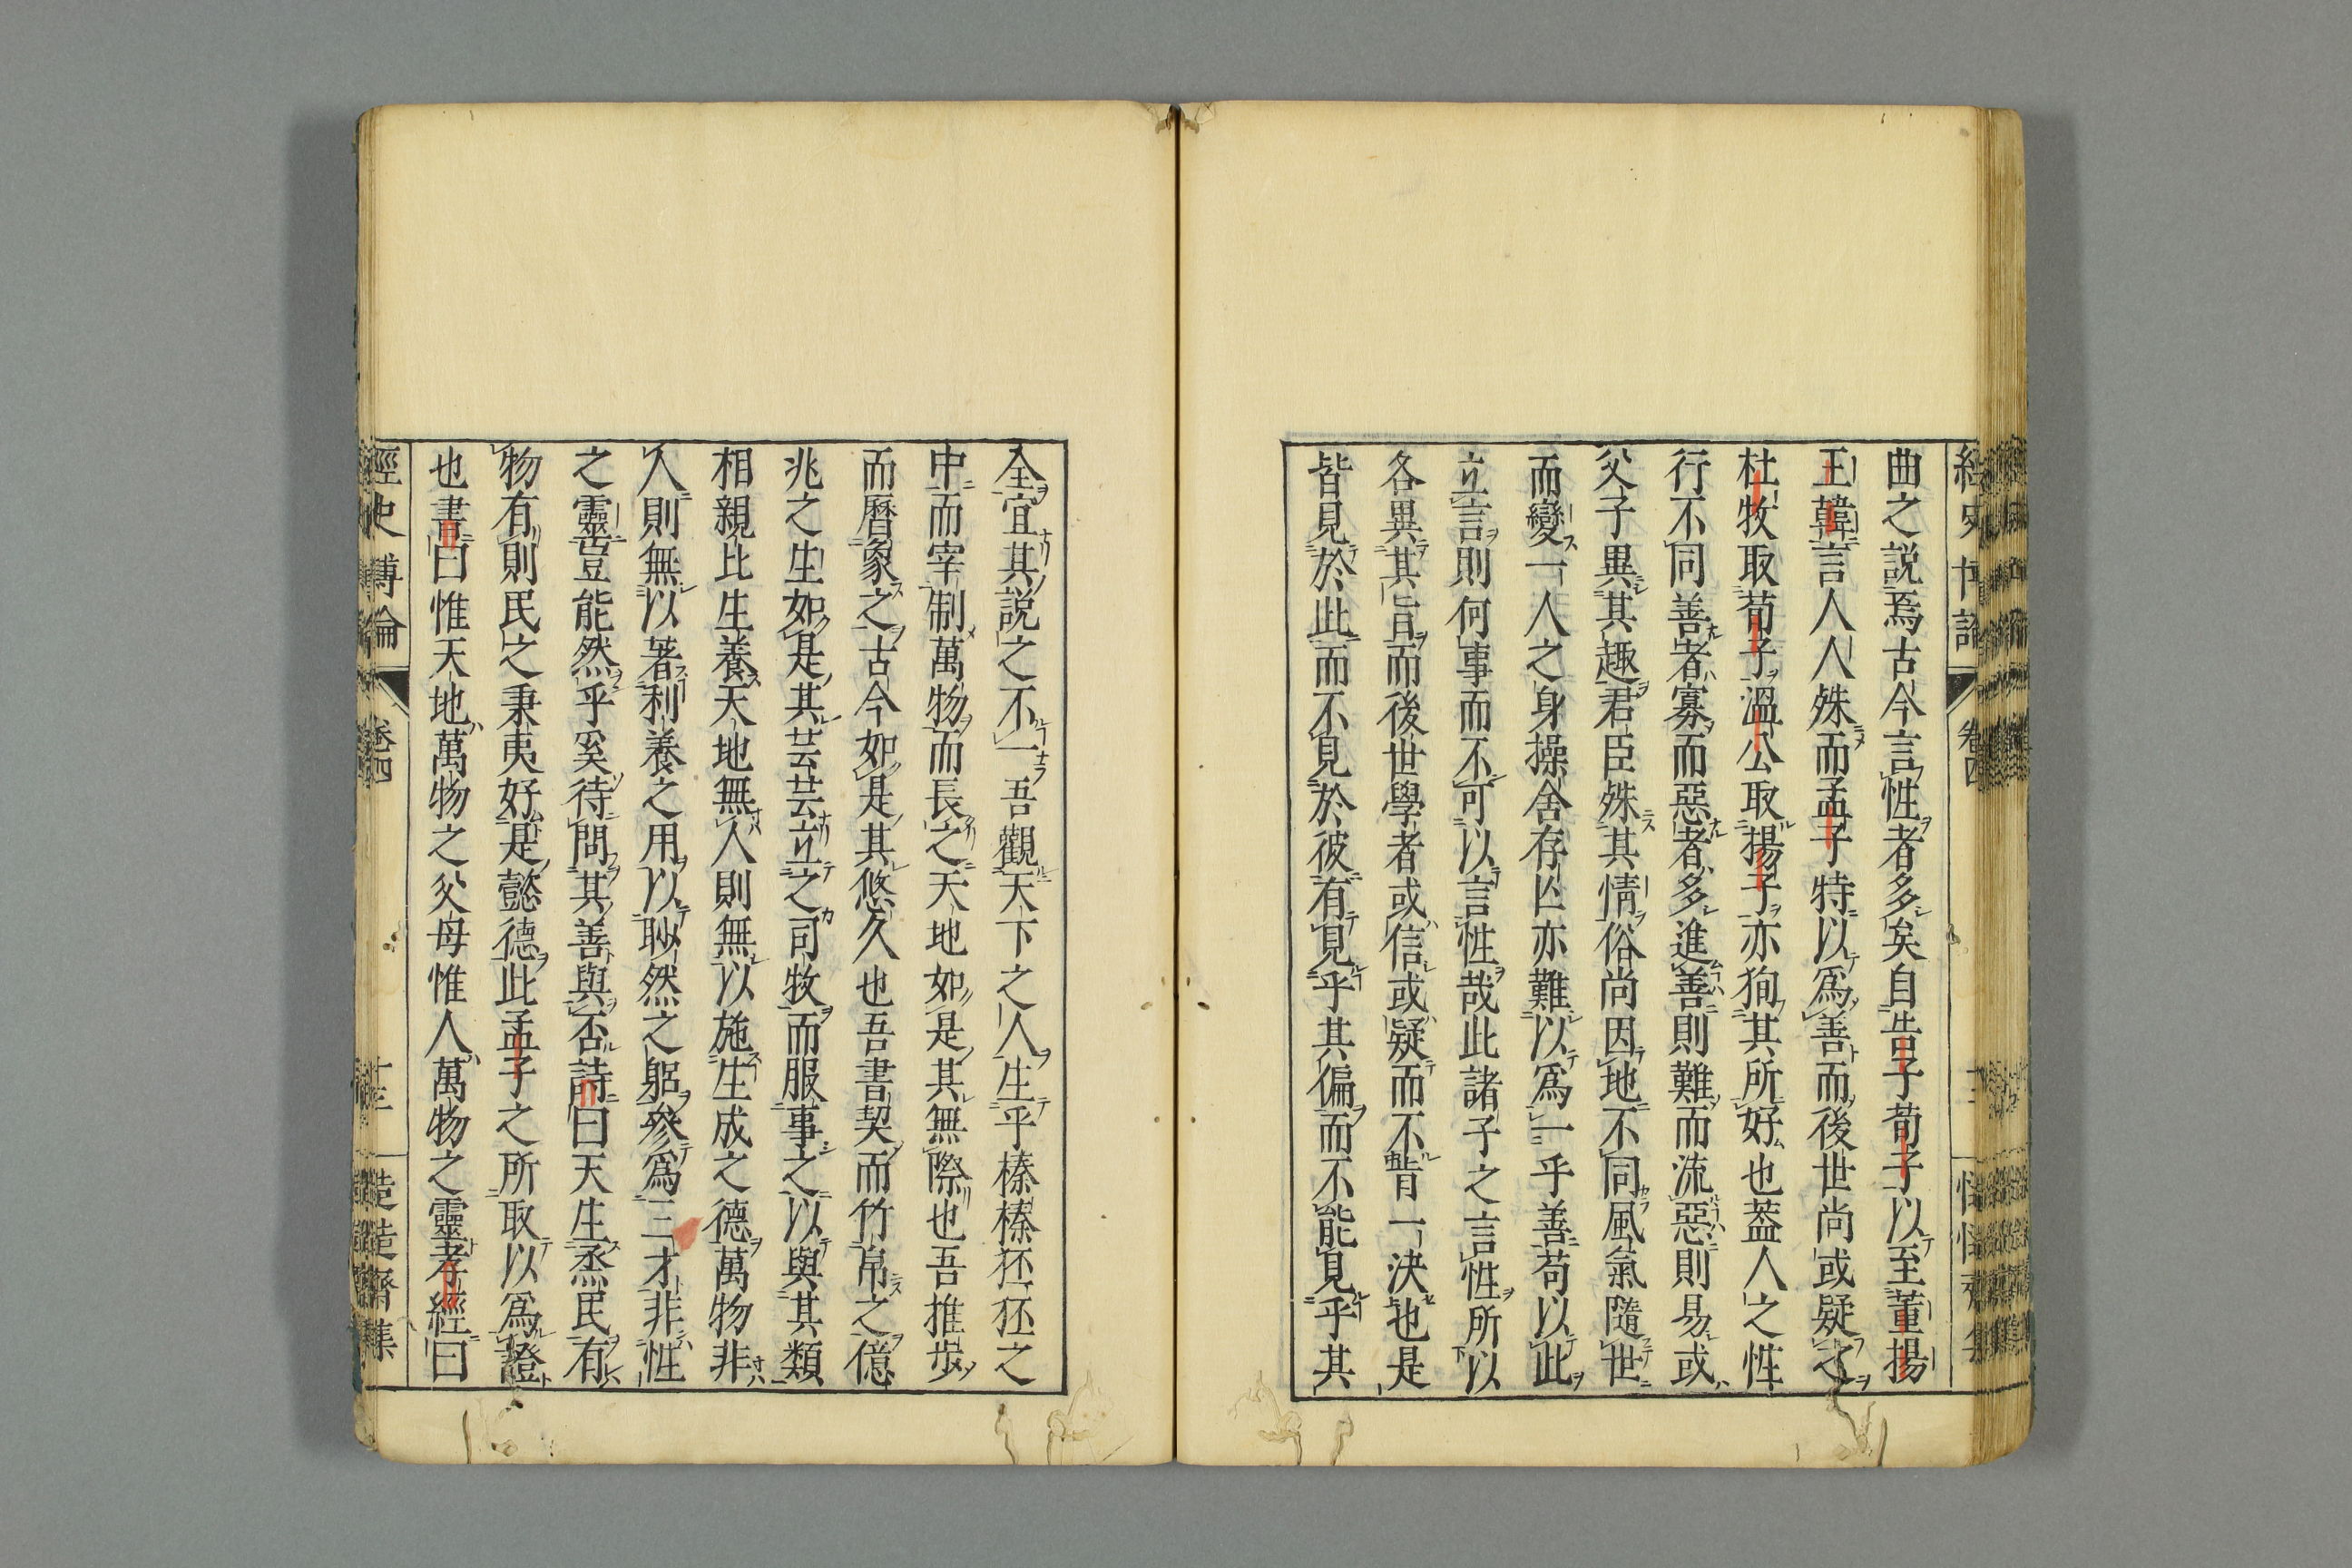 曲之説焉古今言性者多矣自告子荀子以至董揚
王韓言人人殊而孟子特以爲善而後世尚或疑之
杜牧取荀子溫公取揚子亦狥其所好也蓋人之性
行不同善者寡而惡者多進善則難而流惡則易或
父子異其趣君臣殊其情俗尚因地不同風氣隨世
而變一人之身操舍存亾亦難以爲一乎善苟以此
立言則何事而不可以言性哉此諸子之言性所以
各異其旨而後世學者或信或疑而不暫一決也是
皆見於此而不見於彼有見乎其偏而不能見乎其
全宜其説之不一吾觀天下之人生乎榛榛狉狉之
中而宰制萬物而長之天地如是其無際也吾推步
而曆象之古今如是其悠久也吾書契而竹帛之億
兆之生如是其芸芸立之司牧而服事之以與其類
相親比生養天地無人則無以施生成之德萬物非
人則無以著利養之用以眇然之躬參爲三才非性
之靈豈能然乎奚待問其善與否詩曰天生烝民有
物有則民之秉夷好是懿德此孟子之所取以爲證
也書曰惟天地萬物之父母惟人萬物之靈孝經曰
經史博論 卷四 十三